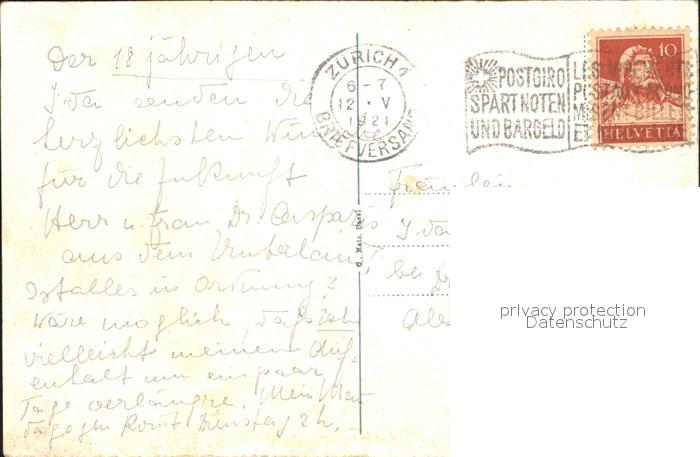 Der 18 jährigen
Ida senden die
herzlichsten Wün
für die Zukunft
Herr u. Frau Dr. Caspari
aus dem Unterland!
Ist alles in Ordnung?
Wäre möglich, dass ich
vielleicht meinen Auf-
enthalt um ein paar
Tage verlängre. Mein Mann
dagegen kommt Dienstag 2 h.
ZÜRICH 1
6-7
12 · V
1921
BRIEFVERSAND
POSTGIRO
SPART NOTEN
UND BARGELD
10
HELVETIA
Fräulein
Ida
bei Dr
G. Metz, Basel
privacy protection
Datenschutz